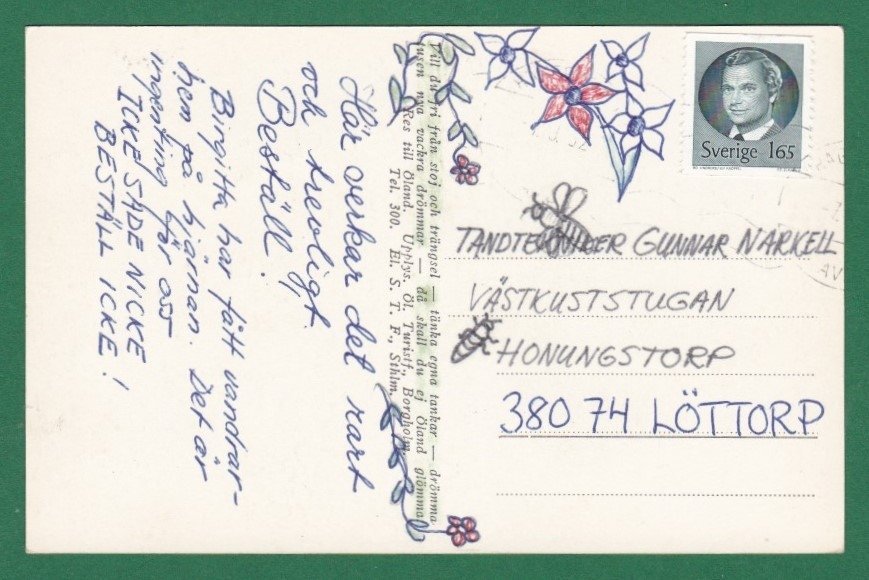 Här verkar det rart
och trevligt.
Beställ!
Birgitta har fått vandrar-
hem på hjärnan. Det är
ingenting för oss
ICKE SADE NICKE
BESTÄLL ICKE!
Vill du fri från stoj och trängsel — tänka egna tankar — drömma
tusen nya vackra drömmar — då skall du ej Öland glömma
Res till Öland. Upplys. Öl. Turistf., Borgholm.
Tel. 300. El. S. T. F., Sthlm.
Sverige 165
TANDTEKNIKER GUNNAR NÄRKELL
VÄSTKUSTSTUGAN
HONUNGSTORP
380 74 LÖTTORP